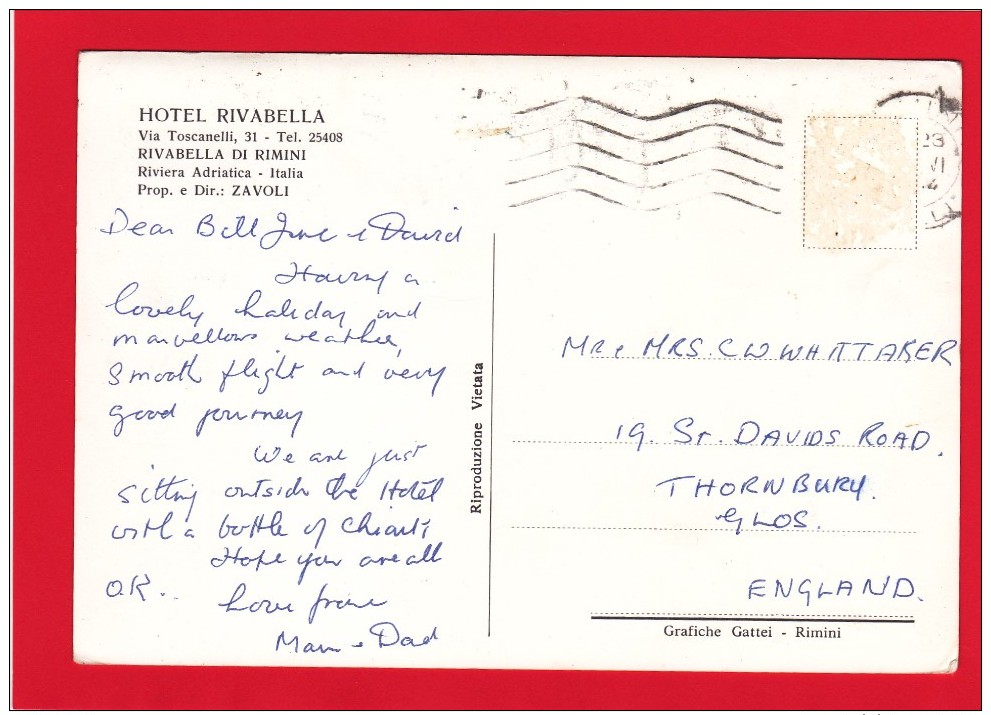 HOTEL RIVABELLA
Via Toscanelli, 31 - Tel. 25408
RIVABELLA DI RIMINI
Riviera Adriatica - Italia
Prop. e Dir.: ZAVOLI
Dear Bill June & David
Having a
lovely holiday and
marvellous weather,
smooth flight and very
good journey
We are just
sitting outside the Hotel
with a bottle of Chianti
Hope you are all
O.K..
Love from
Mam & Dad
Riproduzione Vietata
23
VI
MR & MRS. C W WHITTAKER
19. ST. DAVIDS ROAD.
THORNBURY.
GLOS.
ENGLAND.
Grafiche Gattei - Rimini